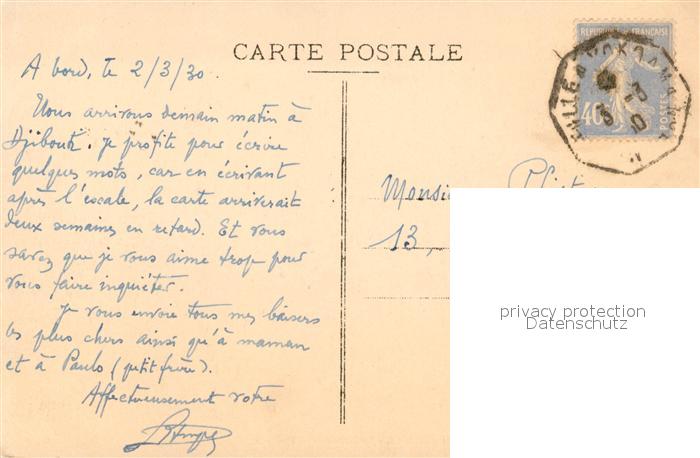 CARTE POSTALE
REPUBLIQUE FRANÇAISE
40c
POSTES
A bord, le 2/3/30.
Nous arrivons demain matin à
Djibouti. je profite pour écrire
quelques mots, car en écrivant
après l'escale, la carte arriverait
deux semaines en retard. Et vous
savez que je vous aime trop pour
vous faire inquiéter.
Je vous envoie tous mes baisers
les plus chers ainsi qu'à maman
et à Paulo (petit frère).
Affectueusement votre
Monsieur
13,
privacy protection
Datenschutz